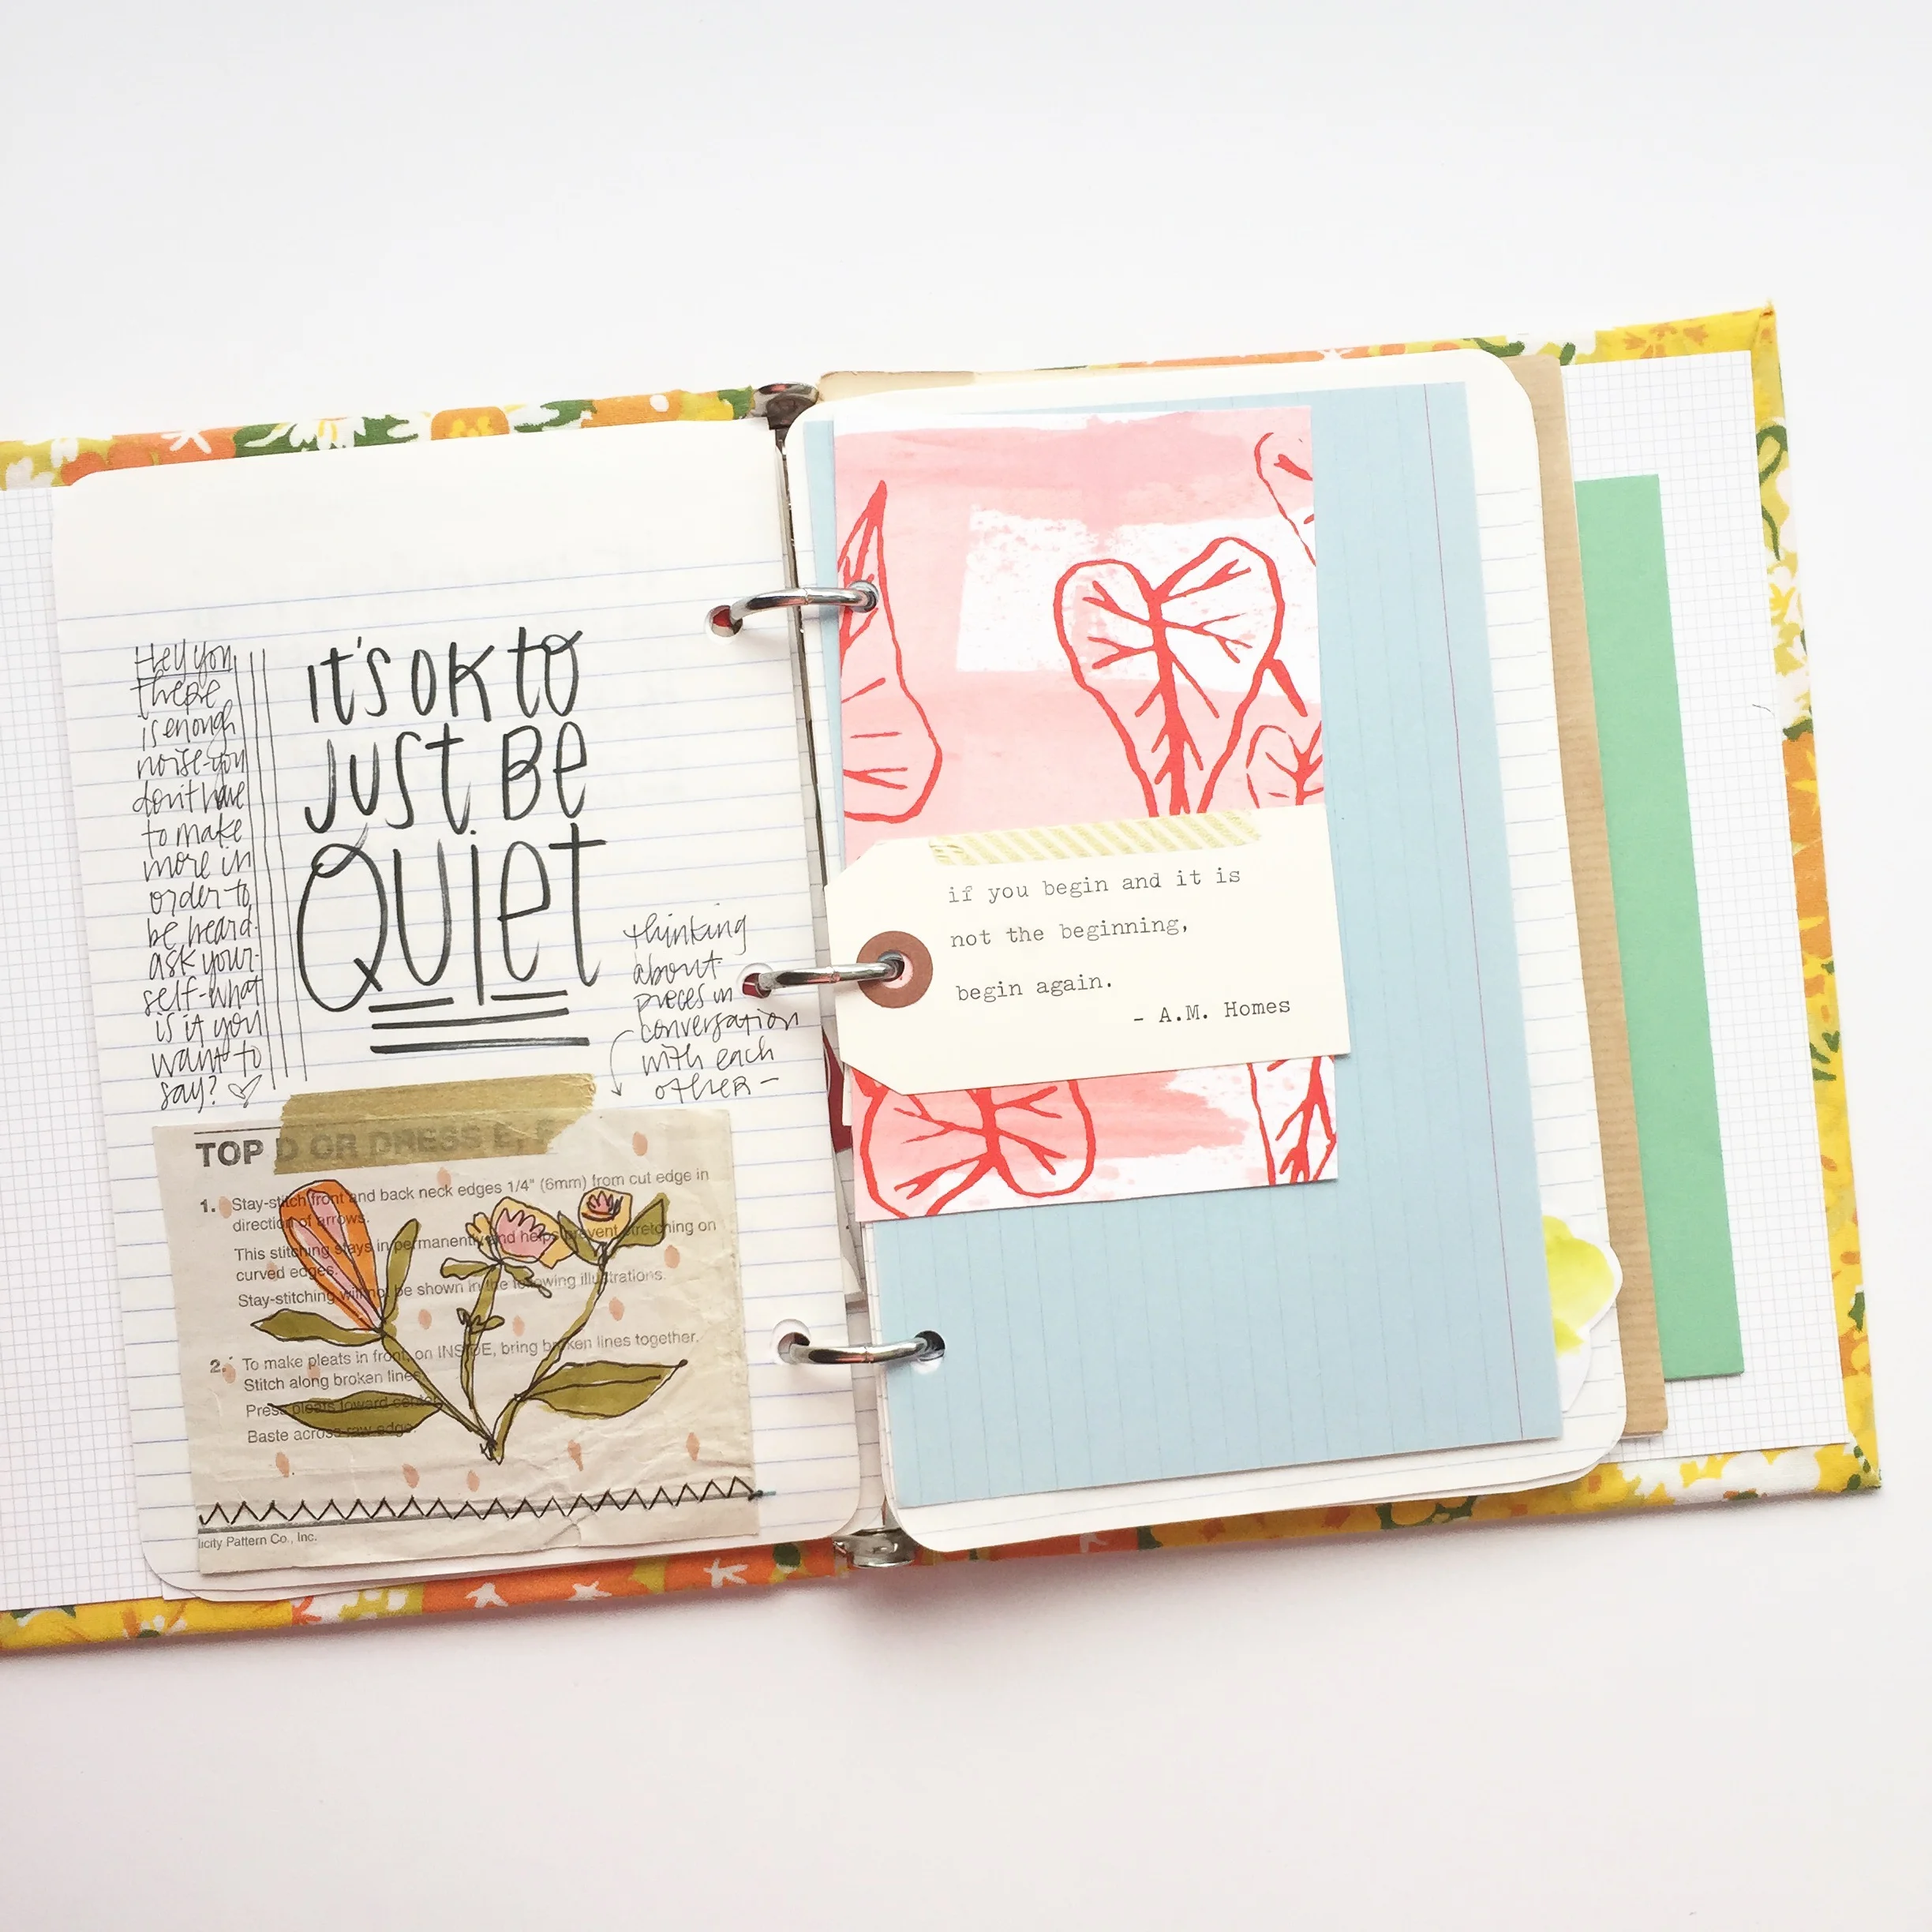 Hey you
there
is enough
noise-you
don't have
to make
more in
order to
be heard.
ask your-
self-what
is it you
want to
say? ♡
it's ok to
just be
Quiet
thinking
about
pieces in
conversation
with each
other —
TOP D OR DRESS
1. Stay-stitch front and back neck edges 1/4" (6mm) from cut edge in
direction of arrows.
This stitching stays in permanently and helps prevent stretching on
curved edges.
Stay-stitching will not be shown in the following illustrations.
2. To make pleats in front, on INSIDE, bring broken lines together.
Stitch along broken lines
Press pleats toward center
Baste across raw edge.
licity Pattern Co., Inc.
if you begin and it is
not the beginning,
begin again.
- A.M. Homes